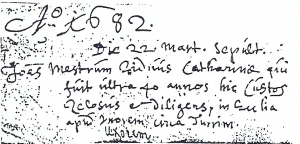 Aº. 1682.
Die 22 Mart. Sepult.
Joes Mestrum Catharinæ qui
fuit ultra 40 annos hic Custos
Zelosus et diligens, in Ecclia
apud Uxorem circa Turrim.
Uxorem